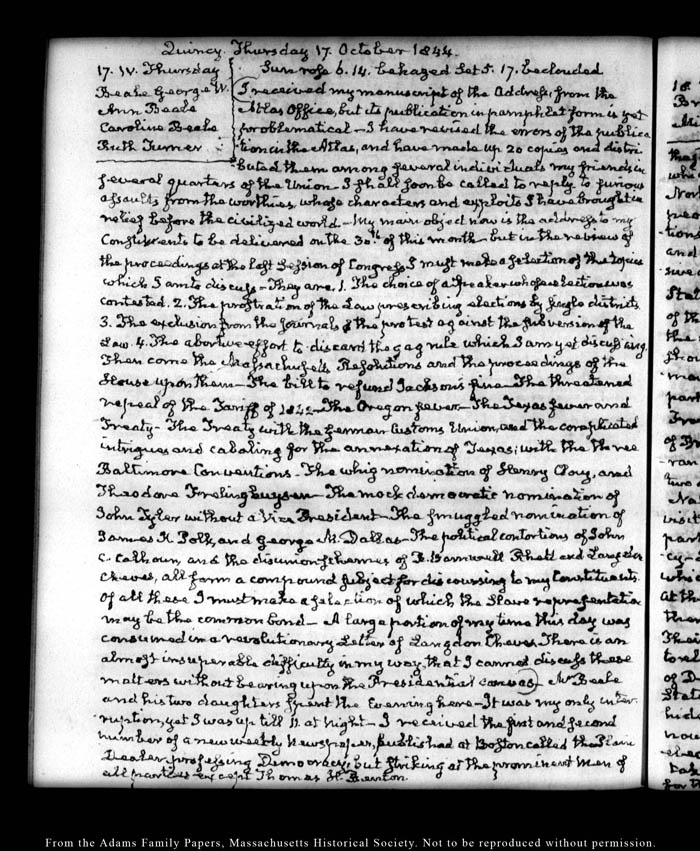 Quincy Thursday 17. October 1844.
17. IV. Thursday
Beale George W.
Ann Beale
Caroline Beale
Ruth Turner
Sun rose 6. 14. behazed Set 5. 17. beclouded
I received my manuscript of the Address, from the
Atlas Office, but its publication in pamphlet form is yet
problematical — I have revised the errors of the publica
tion in the Atlas, and have made up 20 copies and distri-
buted them among several individuals my friends in
several quarters of the Union — I shall soon be called to reply to furious
assaults from the worthies, whose characters and exploits I have brought in
relief before the civilized world — My main object now is the address to my
Constituents to be delivered on the 30th of this month — but in the review of
the proceedings at the last Session of Congress I must make a selection of the topics
which I am to discuss — They are, 1. The choice of a Speaker whose election was
contested. 2. The prostration of the Law prescribing elections by single districts
3. The exclusion from the journals of the protest against the subversion of the
Law. 4. The abortive effort to discard the gag rule which I am yet discussing.
Then come the Massachusetts Resolutions and the proceedings of the
House upon them — The bill to refund Jackson's fine — The threatened
repeal of the Tariff of 1842 — The Oregon fever — The Texas fever and
Treaty — The Treaty with the German Customs Union, and the complicated
intrigues and caballing for the annexation of Texas; with the three
Baltimore Conventions — The whig nomination of Henry Clay, and
Theodore Frelinghuysen — The mock democratic nomination of
John Tyler without a Vice President — The smuggled nomination of
James K Polk, and George M. Dallas — The political contortions of John
C. Calhoun, and the disunion schemes of R. Barnwell Rhett and Langdon
Cheves, all form a compound subject for discoursing to my Constituents.
Of all these I must make a selection of which the Slave representation
may be the common bond — A large portion of my time this day was
consumed in a revolutionary Letter of Langdon Cheves. There is an
almost insuperable difficulty in my way, that I cannot discuss these
matters without bearing upon the Presidential canvas — Mr Beale
and his two daughters spent the Evening here — It was my only inter-
ruption, yet I was up till 11. at Night — I received the first and second
number of a new weekly Newspaper, published at Boston called the Plain
Dealer, professing Democracy, but striking at the prominent men of
all parties except Thomas H. Benton.
From the Adams Family Papers, Massachusetts Historical Society. Not to be reproduced without permission.